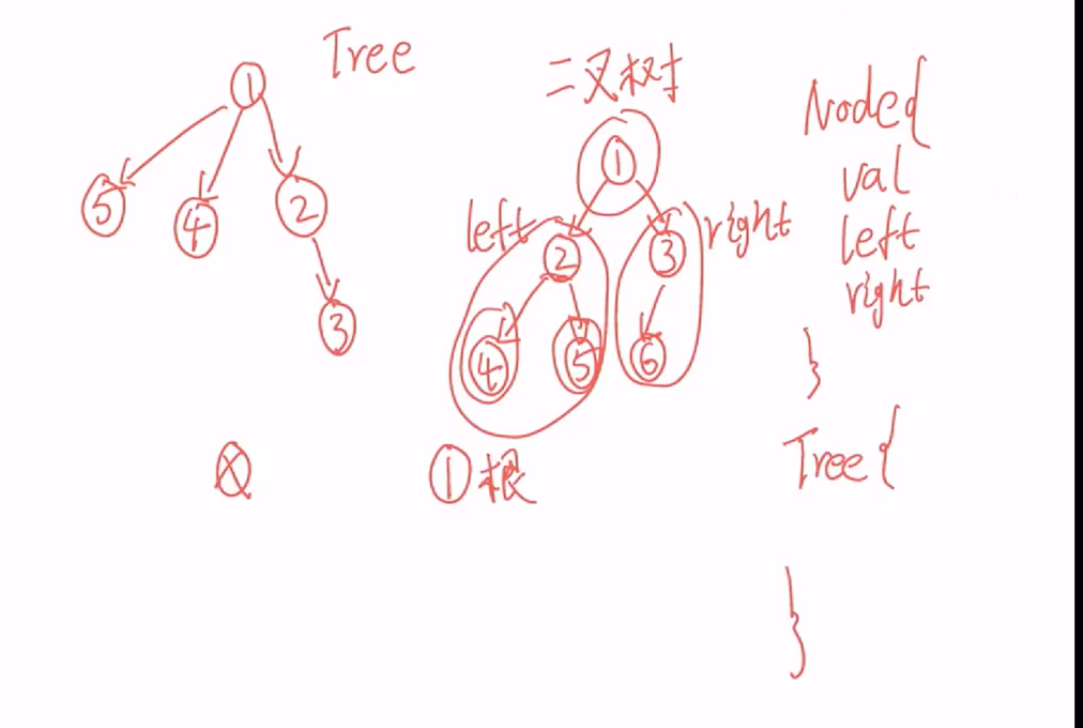 Tree
①
⑤ ④ ②
③
二叉树
①
left ② ③ right
④ ⑤ ⑥
① 根
Node{
val
left
right
}
Tree{
}